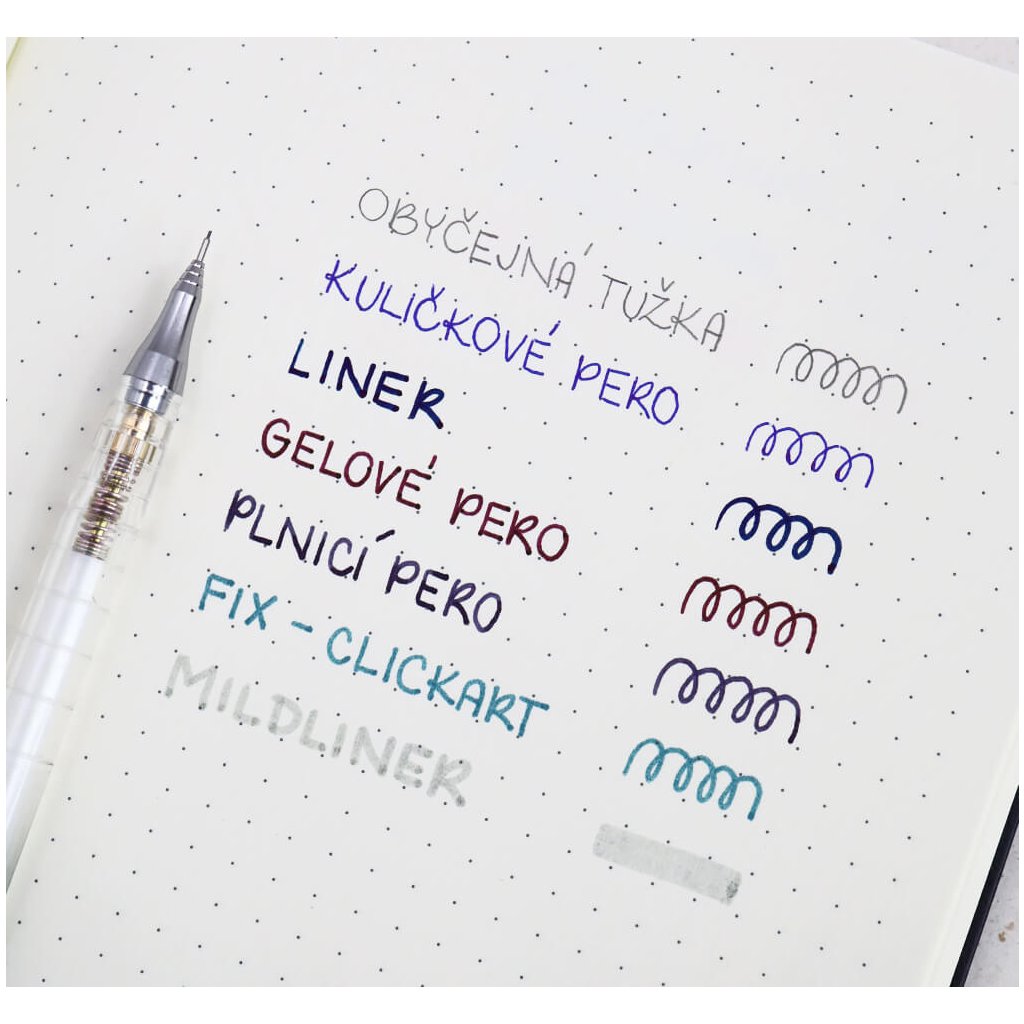 OBYČEJNÁ TUŽKA
KULIČKOVÉ PERO
LINER
GELOVÉ PERO
PLNICÍ PERO
FIX - CLICKART
MILDLINER